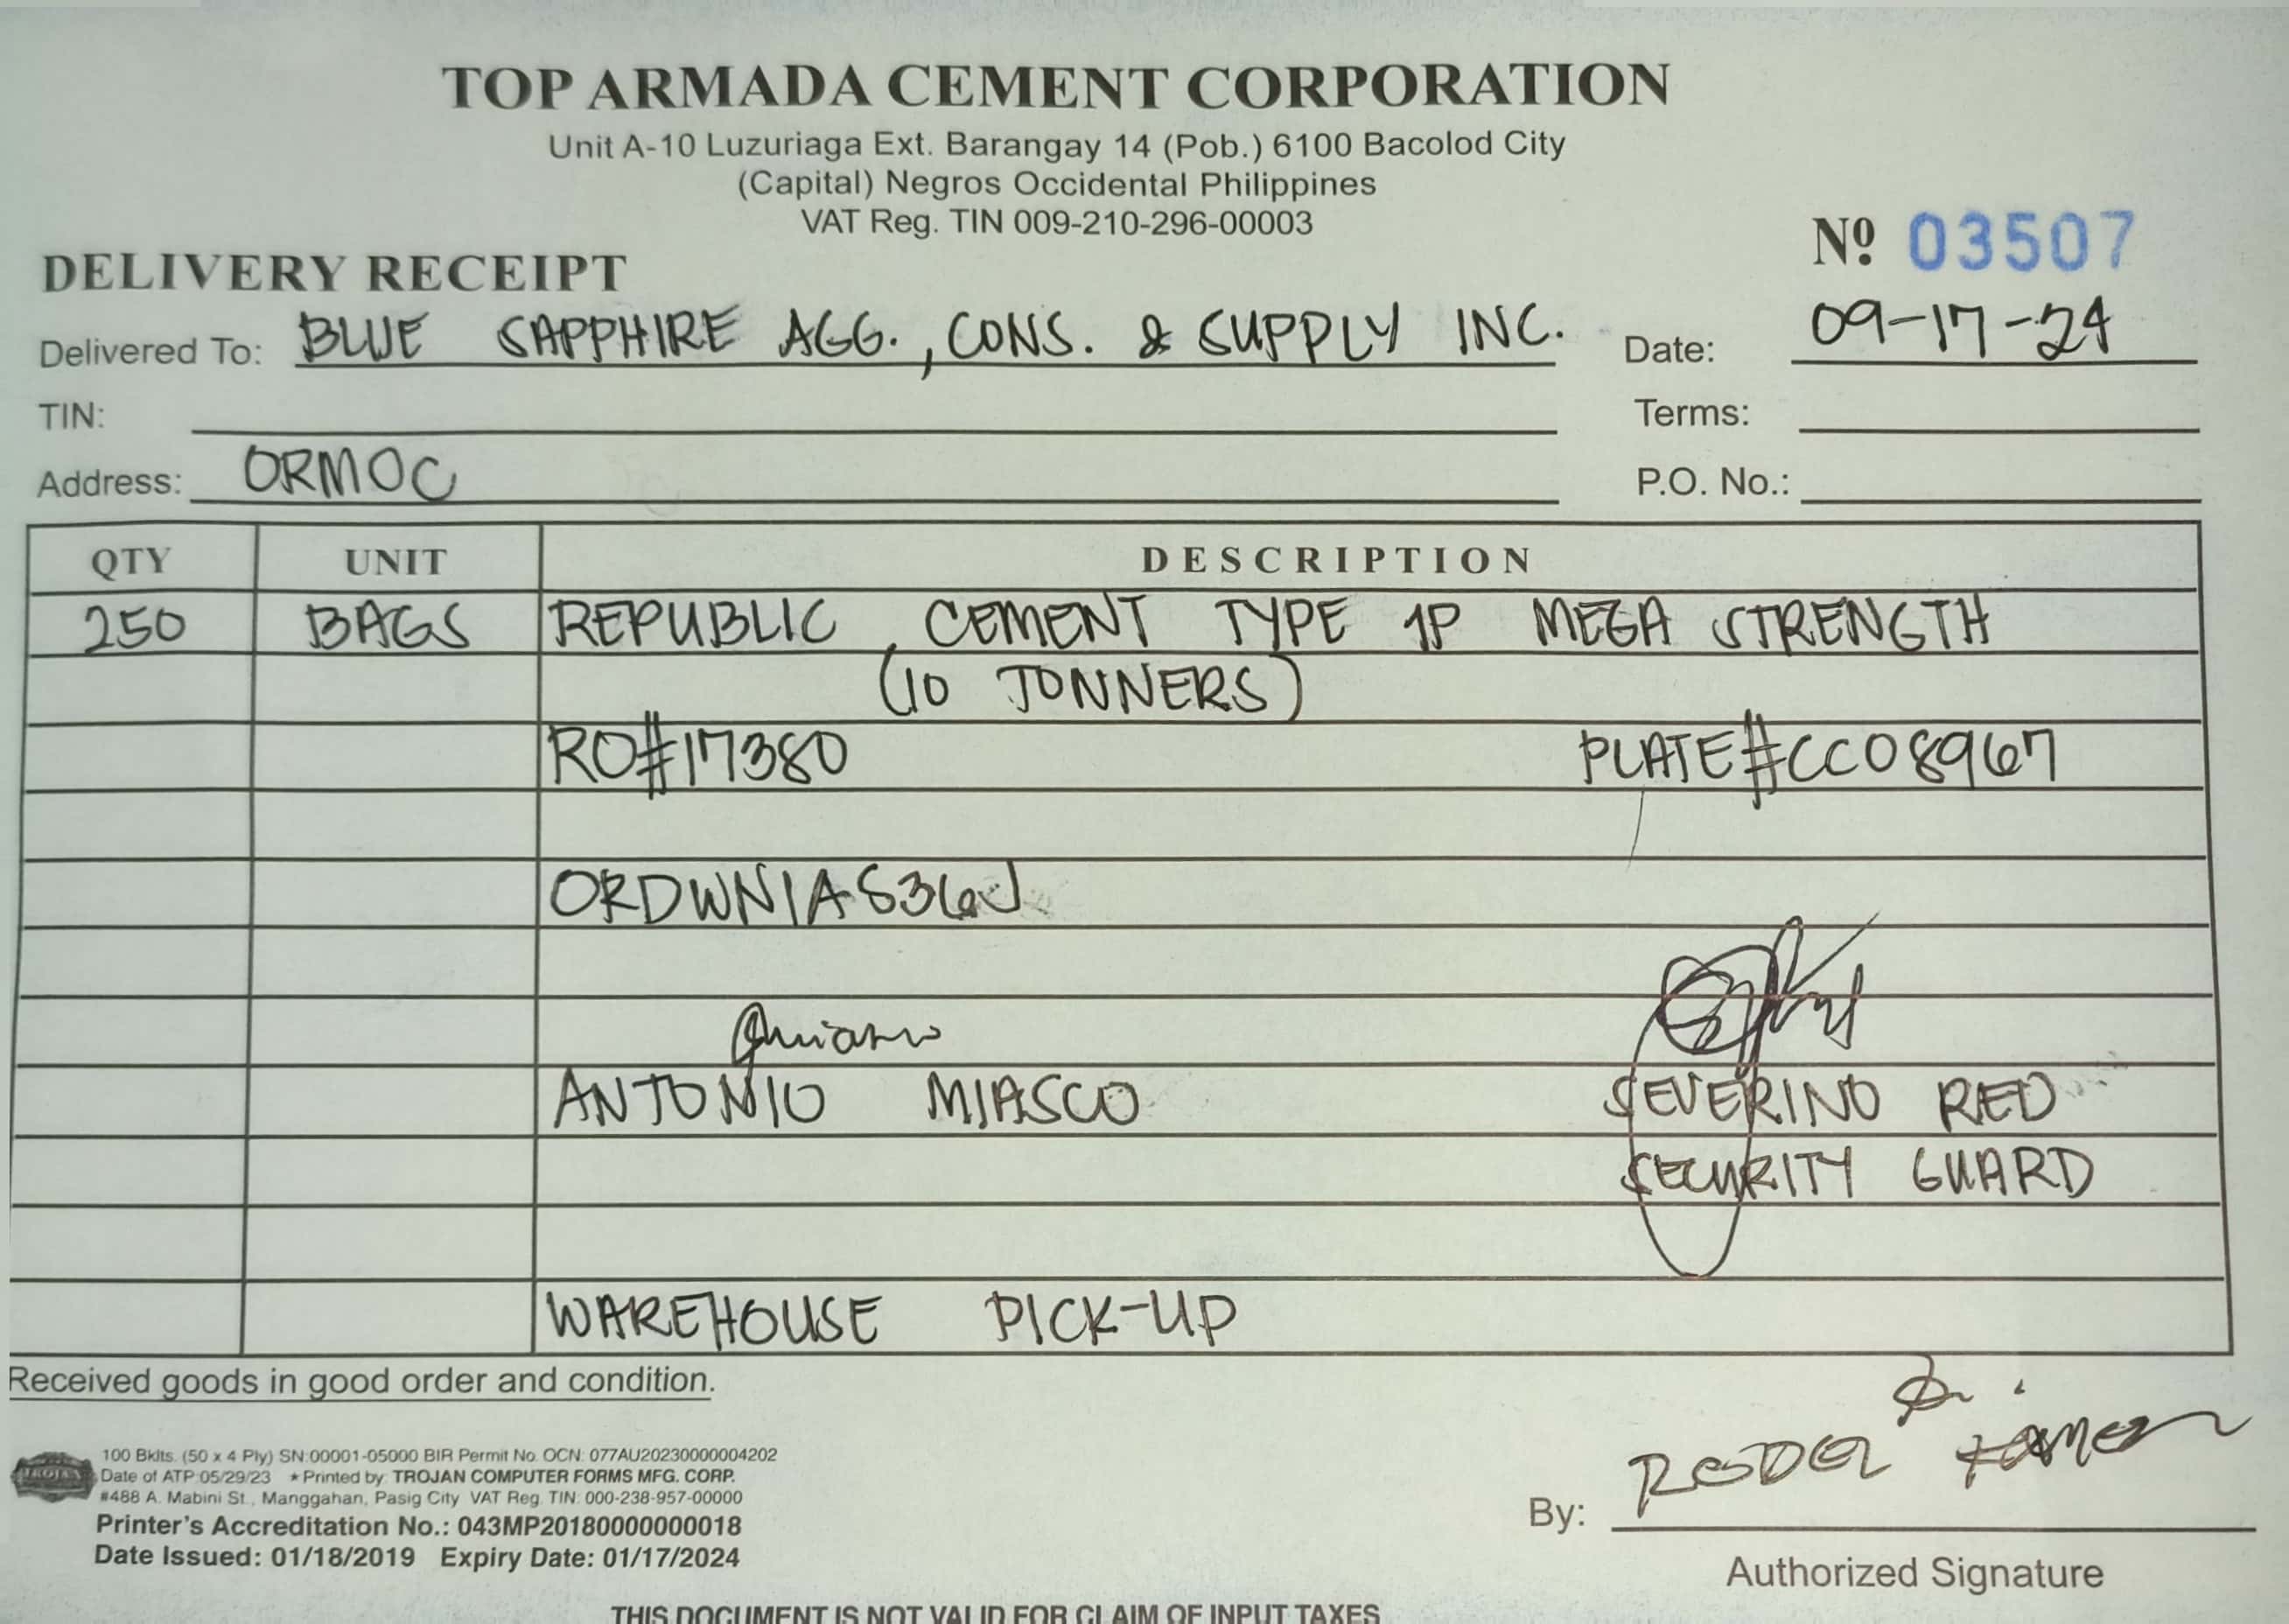 TOP ARMADA CEMENT CORPORATION
Unit A-10 Luzuriaga Ext. Barangay 14 (Pob.) 6100 Bacolod City
(Capital) Negros Occidental Philippines
VAT Reg. TIN 009-210-296-00003
Nº 03507
DELIVERY RECEIPT
Delivered To: BLUE SAPPHIRE AGG., CONS. & SUPPLY INC. Date: 09-17-24
TIN: Terms:
Address: ORMOC P.O. No.:
QTY UNIT DESCRIPTION
250 BAGS REPUBLIC CEMENT TYPE 1P MEGA STRENGTH
(10 TONNERS)
RO#17380 PLATE#CCO8967
ANTONIO MIASCO SEVERINO RED
SECURITY GUARD
WAREHOUSE PICK-UP
Received goods in good order and condition.
TROJAN
100 Bklts. (50 x 4 Ply) SN:00001-05000 BIR Permit No. OCN: 077AU20230000004202
Date of ATP:05/29/23 * Printed by: TROJAN COMPUTER FORMS MFG. CORP.
#488 A. Mabini St., Manggahan, Pasig City VAT Reg. TIN: 000-238-957-00000
Printer's Accreditation No.: 043MP20180000000018
Date Issued: 01/18/2019 Expiry Date: 01/17/2024
By: RODEL
Authorized Signature
THIS DOCUMENT IS NOT VALID FOR CLAIM OF INPUT TAXES